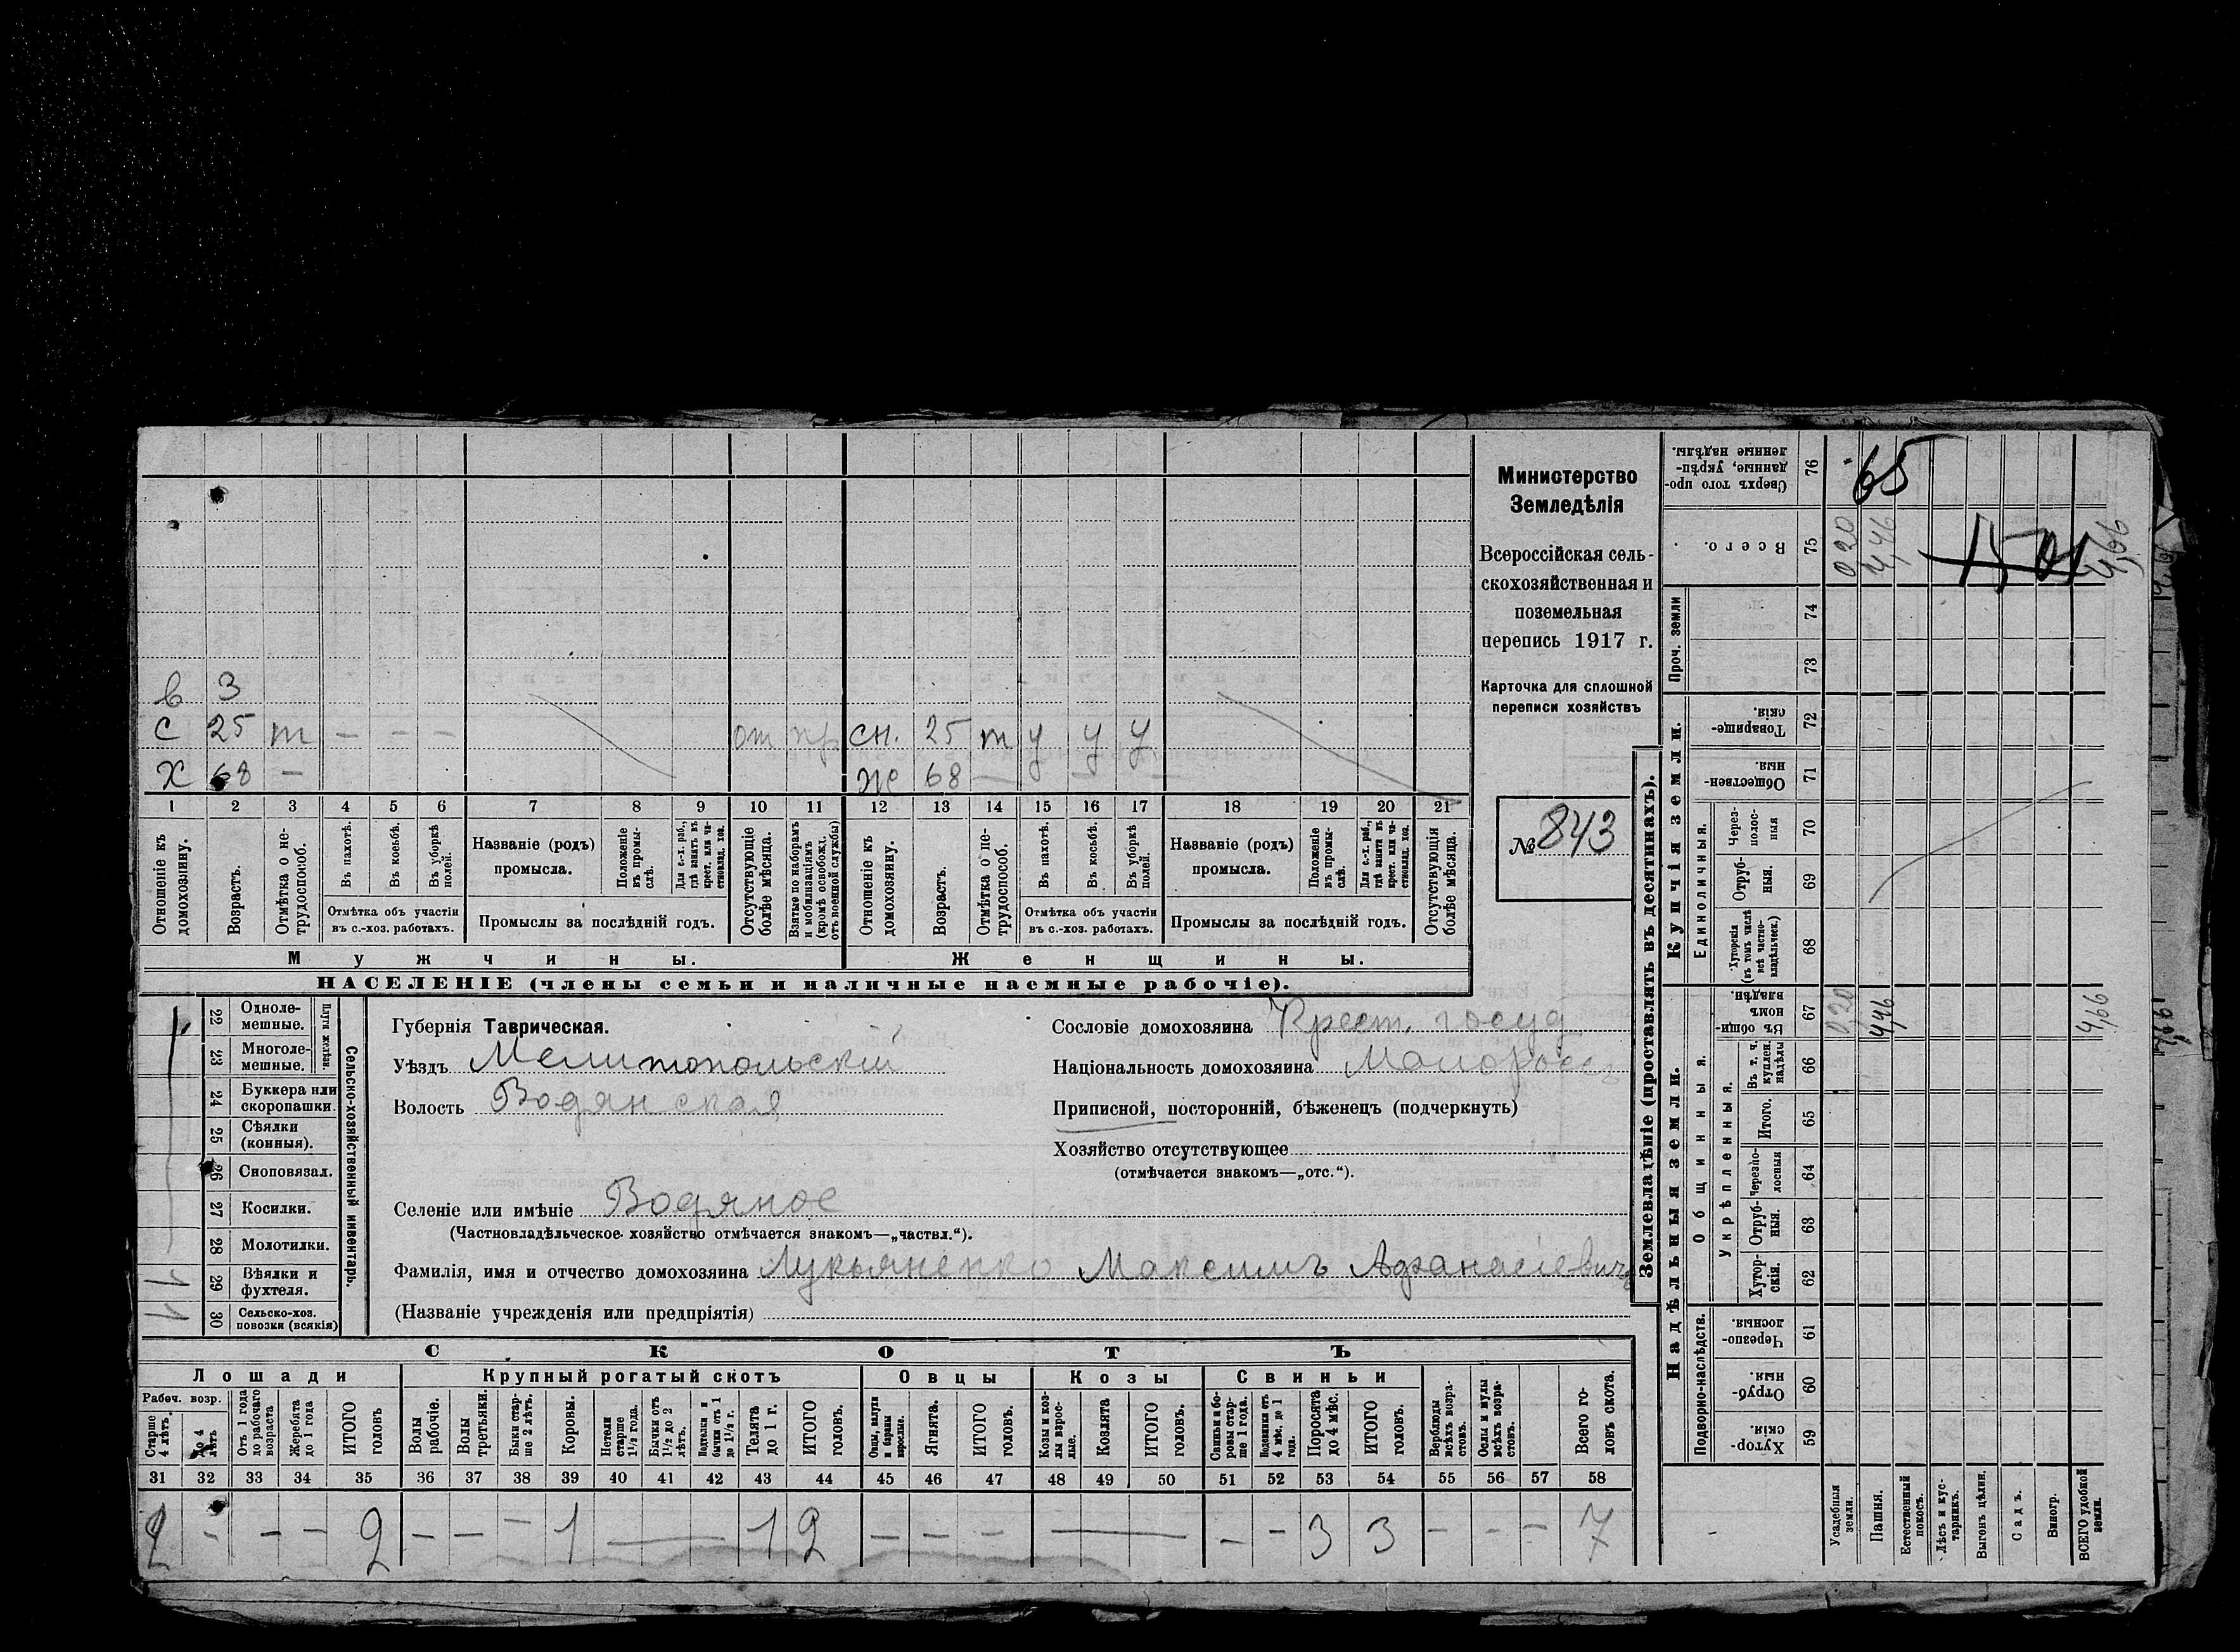 в 3
с 25 т — — — от пр сн. 25 т у у у
х 68 — же 68 — — —
1 2 3 4 5 6 7 8 9 10 11 12 13 14 15 16 17 18 19 20 21
Отношеніе къ домохозяину.
Возрастъ.
Отмѣтка о не-
трудоспособ.
Въ пахотѣ.
Въ косьбѣ.
Въ уборкѣ
полей.
Отмѣтка объ участіи
въ с.-хоз. работахъ.
Названіе (родъ)
промысла.
Положеніе
въ промы-
слѣ.
Для с.-х. раб.,
гдѣ занятъ въ
крест. или ча-
стновлад. хоз.
Промыслы за послѣдній годъ.
Отсутствующіе
болѣе мѣсяца.
Взятые по наборамъ
и мобилизаціямъ
(кромѣ освобожд.
отъ военной службы)
Отношеніе къ
домохозяину.
Возрастъ.
Отмѣтка о не-
трудоспособ.
Въ пахотѣ.
Въ косьбѣ.
Въ уборкѣ
полей.
Отмѣтка объ участіи
въ с.-хоз. работахъ.
Названіе (родъ)
промысла.
Положеніе
въ промы-
слѣ.
Для с.-х. раб.,
гдѣ занята въ
крест. или ча-
стновлад. хоз.
Промыслы за послѣдній годъ.
Отсутствующія
болѣе мѣсяца.
Мужчины.
Женщины.
НАСЕЛЕНІЕ (члены семьи и наличные наемные рабочіе).
Министерство
Земледѣлія
Всероссійская сель-
скохозяйственная и
поземельная
перепись 1917 г.
Карточка для сплошной
переписи хозяйствъ
№ 843
22 Одноле-
мешные.
23 Многоле-
мешные.
Плуги желѣзн.
24 Буккера или
скоропашки.
25 Сѣялки
(конныя).
26 Сноповязал.
27 Косилки.
28 Молотилки.
29 Вѣялки и
фухтеля.
30 Сельско-хоз.
повозки (всякія)
Сельско-хозяйственный инвентарь.
Губернія Таврическая.
Уѣздъ Мелитопольскій
Волость Водянская
Селеніе или имѣніе Водяное
(Частновладѣльческое хозяйство отмѣчается знакомъ—„частвл.“).
Фамилія, имя и отчество домохозяина Лукьяненко Максимъ Афанасіевичъ
(Названіе учрежденія или предпріятія)
Сословіе домохозяина Крест. госуд
Національность домохозяина Малоросс
Приписной, посторонній, бѣженецъ (подчеркнуть)
Хозяйство отсутствующее
(отмѣчается знакомъ—„отс.“).
СКОТЪ
Лошади
Крупный рогатый скотъ
Овцы
Козы
Свиньи
Рабоч. возр.
Старше
4 лѣтъ.
До 4
лѣтъ
Отъ 1 года
до рабочаго
возраста
Жеребята
до 1 года
ИТОГО
головъ
Волы
рабочіе.
Волы
третьяки.
Быки стар-
ше 2 лѣтъ.
Коровы.
Нетели
старше
1½ года.
Бычки отъ
1½ до 2
лѣтъ.
Нетелки и
бычки отъ 1
до 1½ г.
Телята
до 1 г.
ИТОГО
головъ.
Овцы, валухи
и бараны
взрослые.
Ягнята.
ИТОГО
головъ.
Козы и коз-
лы взрос-
лые.
Козлята
ИТОГО
головъ.
Свиньи и бо-
ровы стар-
ше 1 года.
Подсвинки отъ
4 мѣс. до 1
года.
Поросята
до 4 мѣс.
ИТОГО
головъ.
Верблюды
всѣхъ возра-
стовъ.
Ослы и мулы
всѣхъ возра-
стовъ.
Всего го-
ловъ скота.
31 32 33 34 35 36 37 38 39 40 41 42 43 44 45 46 47 48 49 50 51 52 53 54 55 56 57 58
2 — — — 2 — — — 1 — 1 2 — — — — — — 3 3 — — — 7
Землевладѣніе (проставлять въ десятинахъ).
Надѣльныя земли.
Купчія земли.
Проч. земли
Подворно-наслѣдств.
Общинныя.
Укрѣпленныя.
Единоличныя.
Сверхъ того про-
данные, укрѣп-
ленные надѣлы.
76
65
Всего.
75
0,20
4,46
1501
4,66
74
73
Товарище-
скія.
72
Обществен-
ныя.
71
Через-
полос-
ныя
70
Отруб-
ныя.
69
Хуторскія
(въ томъ числѣ
всѣ частно-
владѣльческ.)
68
Въ общин-
номъ
владѣн.
67
0,20
4,46
4,66
Въ т. ч.
куплен.
надѣлы
66
Итого.
65
Черезпо-
лосныя
64
Отруб-
ныя.
63
Хутор-
скія.
62
Черезпо-
лосныя.
61
Отруб-
ныя.
60
Хутор-
скія.
59
Усадебныя
земли.
Пашня.
Естественный
покосъ.
Лѣсъ и кус-
тарникъ.
Выгонъ цѣлин.
Садъ.
Виногр.
ВСЕГО удобной
земли.